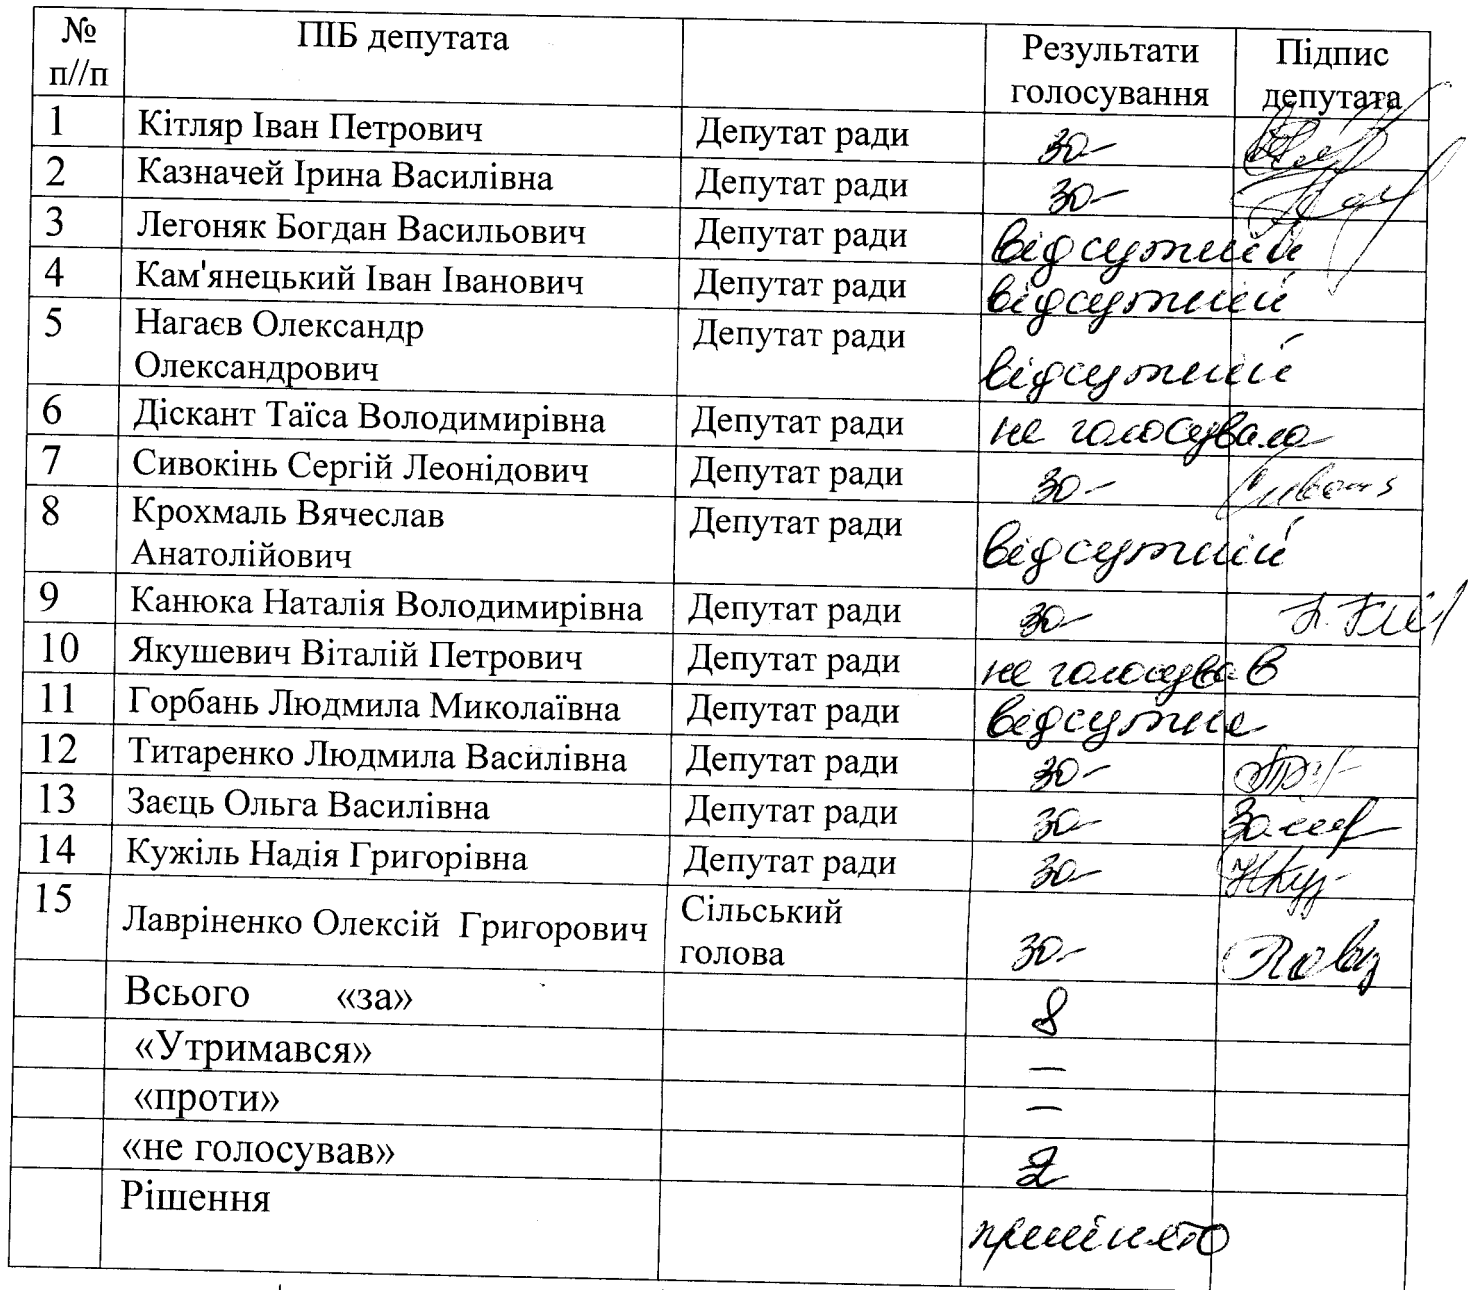 № п//п ПІБ депутата Результати голосування Підпис депутата
1 Кітляр Іван Петрович Депутат ради за
2 Казначей Ірина Василівна Депутат ради за
3 Легоняк Богдан Васильович Депутат ради відсутній
4 Кам'янецький Іван Іванович Депутат ради відсутній
5 Нагаєв Олександр Олександрович Депутат ради відсутній
6 Діскант Таїса Володимирівна Депутат ради не голосувала
7 Сивокінь Сергій Леонідович Депутат ради за
8 Крохмаль Вячеслав Анатолійович Депутат ради відсутній
9 Канюка Наталія Володимирівна Депутат ради за
10 Якушевич Віталій Петрович Депутат ради не голосував
11 Горбань Людмила Миколаївна Депутат ради відсутня
12 Титаренко Людмила Василівна Депутат ради за
13 Заєць Ольга Василівна Депутат ради за
14 Кужіль Надія Григорівна Депутат ради за
15 Лавріненко Олексій Григорович Сільський голова за
Всього «за» 8
«Утримався» –
«проти» –
«не голосував» 2
Рішення прийнято